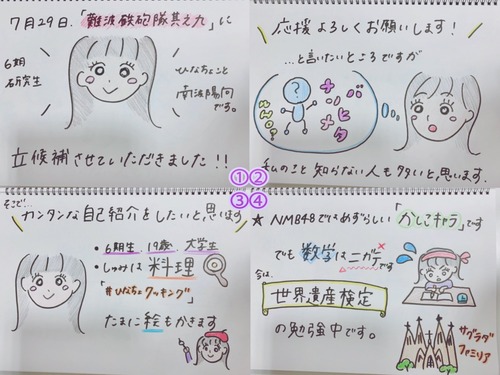 7月29日、「難波鉄砲隊其之九」に
6期
研究生
ひなちょこと
南波陽向
です。
立候補させていただきました!!
応援よろしくお願いします!
…と言いたいところですが
?
ナンバ
ヒナタ
私のこと知らない人も多いと思います。
①②
③④
そこで…
カンタンな自己紹介をしたいと思います
・6期生、19歳、大学生
・しゅみは料理
「#ひなちょクッキング」
たまに絵もかきます
★NMB48でもめずらしい「かしこキャラ」です
でも数学はニガテです
今は、
世界遺産検定
の勉強中です。
サグラダ
ファミリア